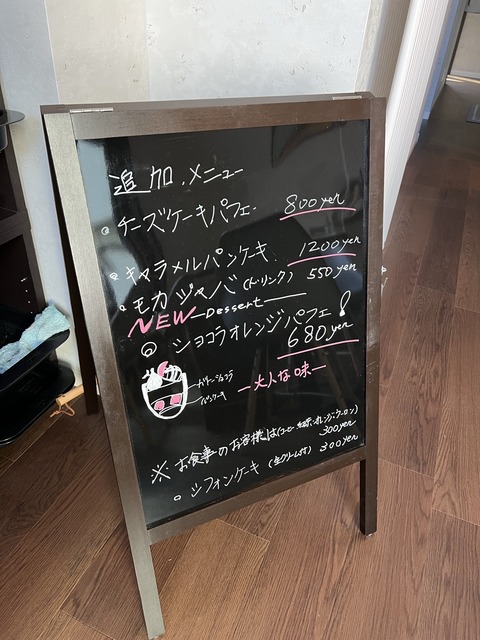 追加メニュー
チーズケーキパフェ 800yen
キャラメルパンケーキ 1200yen
モカジャバ(ドリンク) 550yen
NEW Dessert
ショコラオレンジパフェ!
680yen
ガトーショコラ
パンケーキ
ー大人な味ー
※お食事のお客様は(コーヒー・紅茶・オレンジ・ウーロン)
300yen
シフォンケーキ(生クリーム付) 300yen